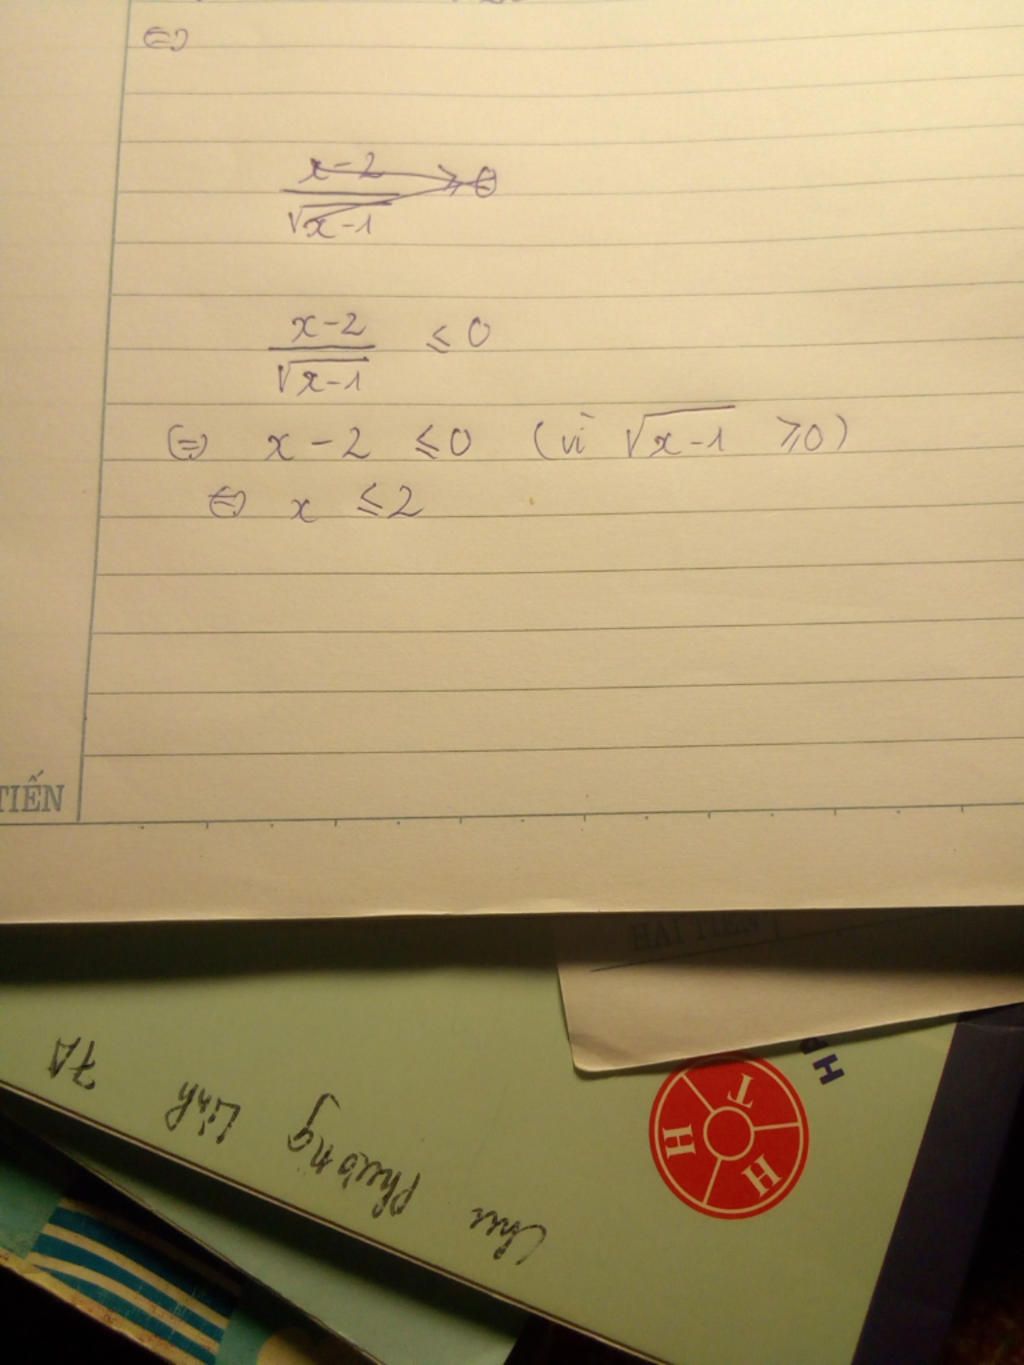 ⇔
x-2
√x-1
≥0
x-2
√x-1
≤ 0
⇔ x-2 ≤0 (vì √x-1 ≥0)
⇔ x ≤2
TIẾN
HẢI TIẾN
HP
H T H
Chu Phương Linh 7A